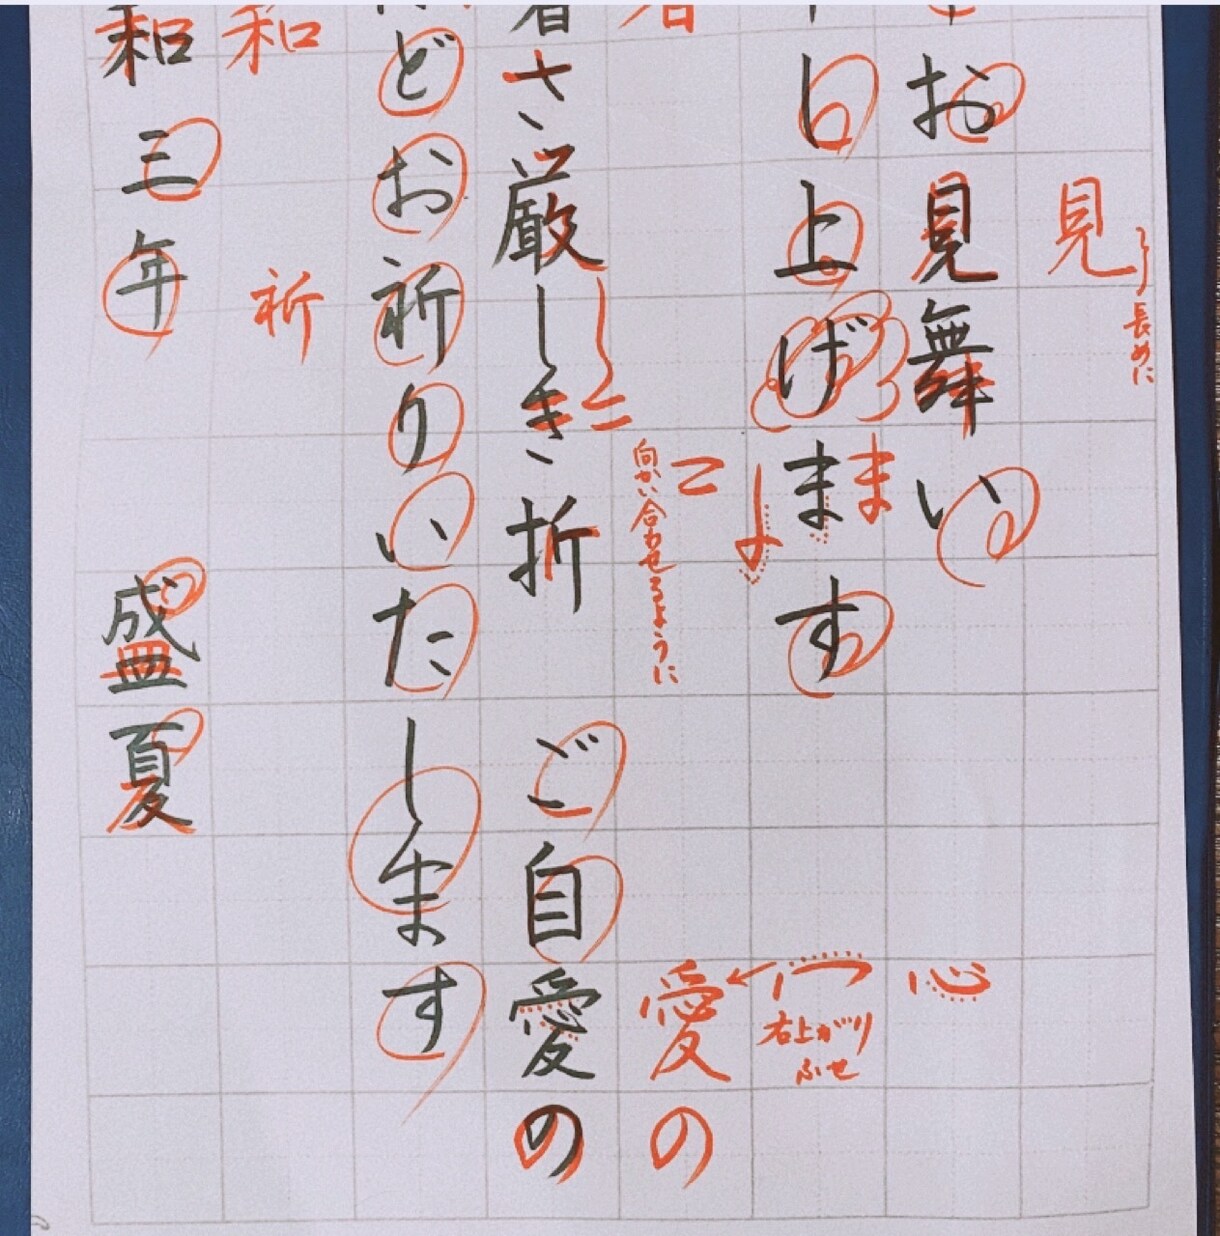 見
長めに
お見舞い
し上げます
ま
向かい合わせるように
心
右上がり
ふせ
さ厳しき折
ご自愛の
愛
の
どお祈りいたします
祈
和
和三年
盛夏